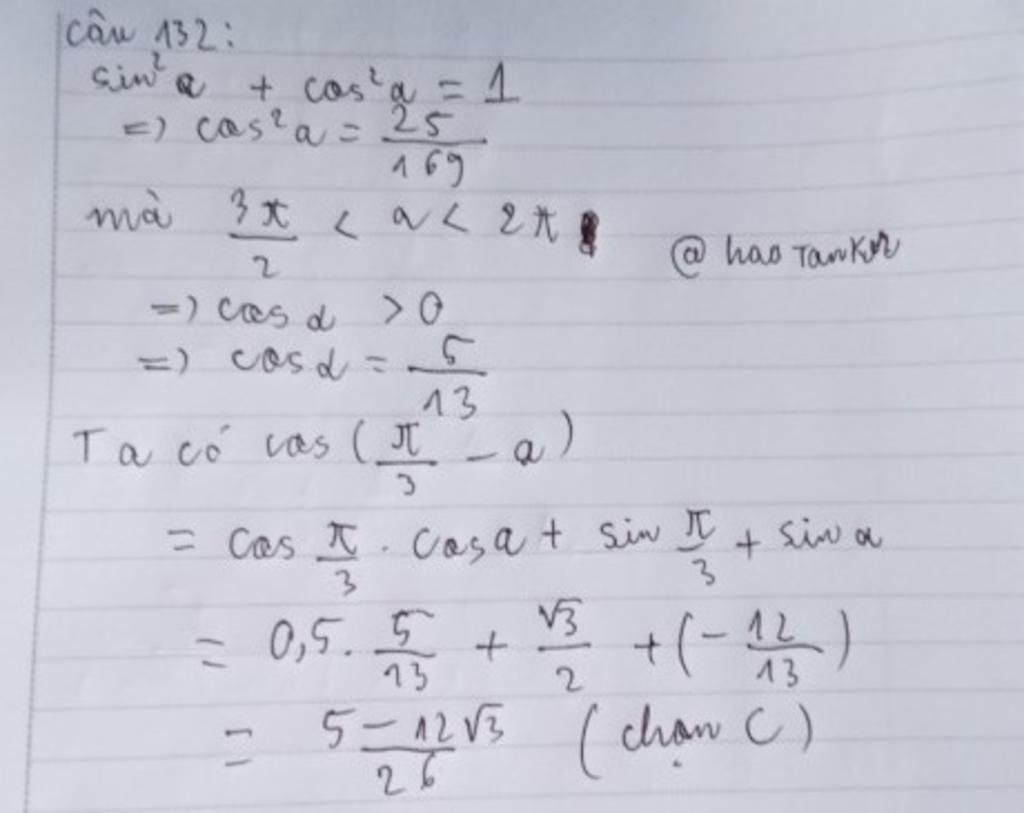 Câu 132:
sin²a + cos²a = 1
=> cos²a = 25/169
mà 3π/2 < a < 2π
@haoTanker
=> cos α > 0
=> cos α = 5/13
Ta có cos (π/3 - a)
= cos π/3 . cos a + sin π/3 + sin a
= 0,5. 5/13 + √3/2 + (-12/13)
= 5-12√3/26 (chọn C)